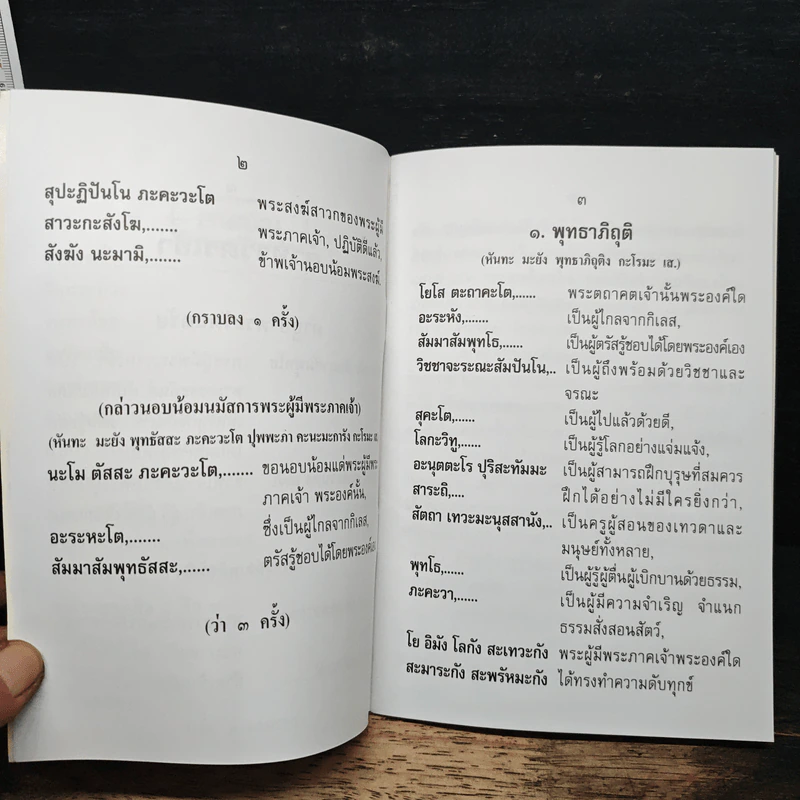 ๒
สุปะฏิปันโน ภะคะวะโต พระสงฆ์สาวกของพระผู้มี
สาวะกะสังโฆ,....... พระภาคเจ้า, ปฏิบัติดีแล้ว,
สังฆัง นะมามิ,....... ข้าพเจ้านอบน้อมพระสงฆ์,
(กราบลง ๑ ครั้ง)
(กล่าวนอบน้อมนมัสการพระผู้มีพระภาคเจ้า)
(หันทะ มะยัง พุทธัสสะ ภะคะวะโต ปุพพะภา คะนะมะการัง กะโรมะ เส
นะโม ตัสสะ ภะคะวะโต,....... ขอนอบน้อมแด่พระผู้มีพระ
ภาคเจ้า พระองค์นั้น,
อะระหะโต,....... ซึ่งเป็นผู้ไกลจากกิเลส,
สัมมาสัมพุทธัสสะ,...... ตรัสรู้ชอบได้โดยพระองค์เอง
(ว่า ๓ ครั้ง)
๓
๑. พุทธาภิถุติ
(หันทะ มะยัง พุทธาภิถุติง กะโรมะ เส.)
โยโส ตะถาคะโต,...... พระตถาคตเจ้านั้นพระองค์ใด
อะระหัง,....... เป็นผู้ไกลจากกิเลส,
สัมมาสัมพุทโธ,...... เป็นผู้ตรัสรู้ชอบได้โดยพระองค์เอง
วิชชาจะระณะสัมปันโน,.. เป็นผู้ถึงพร้อมด้วยวิชชาและ
จรณะ
สุคะโต,...... เป็นผู้ไปแล้วด้วยดี,
โลกะวิทู,...... เป็นผู้รู้โลกอย่างแจ่มแจ้ง,
อะนุตตะโร ปุริสะทัมมะ เป็นผู้สามารถฝึกบุรุษที่สมควร
สาระถิ,.... ฝึกได้อย่างไม่มีใครยิ่งกว่า,
สัตถา เทวะมะนุสสานัง,.. เป็นครูผู้สอนของเทวดาและ
มนุษย์ทั้งหลาย,
พุทโธ,...... เป็นผู้รู้ผู้ตื่นผู้เบิกบานด้วยธรรม,
ภะคะวา,...... เป็นผู้มีความจำเริญ จำแนก
ธรรมสั่งสอนสัตว์,
โย อิมัง โลกัง สะเทวะกัง พระผู้มีพระภาคเจ้าพระองค์ใด
สะมาระกัง สะพรัหมะกัง ได้ทรงทำความดับทุกข์